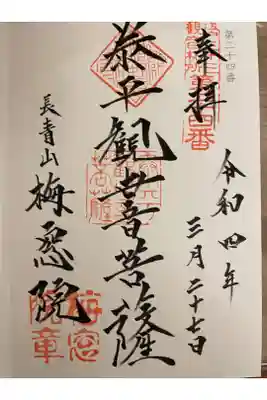 第二十四番
奉拝
令和四年
三月二十七日
泰平觀世音菩薩
長青山
梅窓院
梅窓
院章